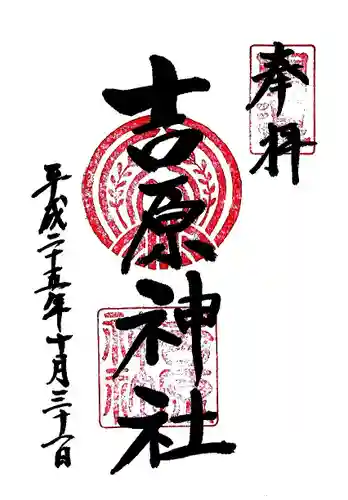 奉拝
吉原神社
平成二十五年十月三十一日